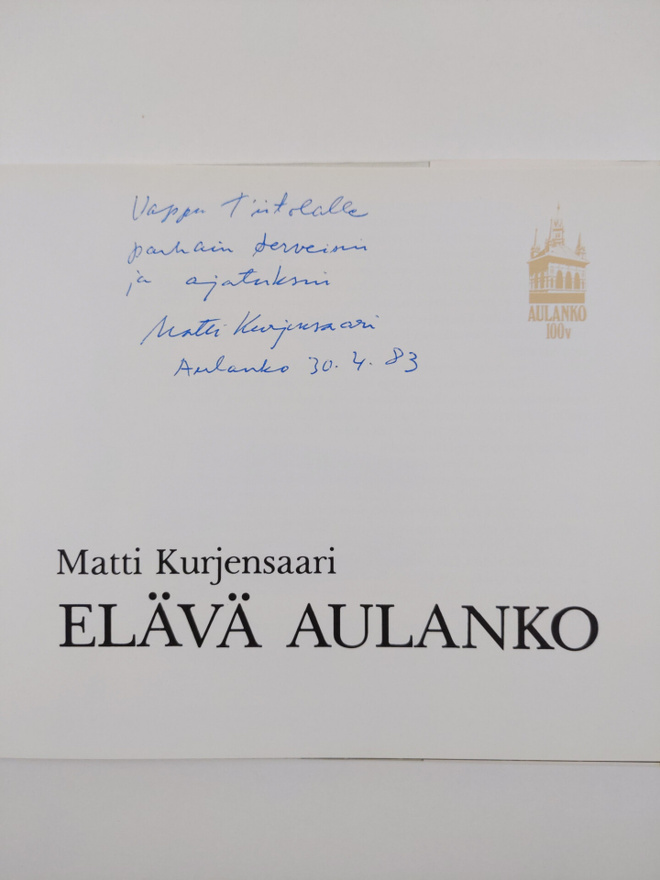 Vappu Tiitolalle
parhain terveisin
ja ajatuksin
Matti Kurjensaari
Aulanko 30.4.83
AULANKO
100v
Matti Kurjensaari
ELÄVÄ AULANKO